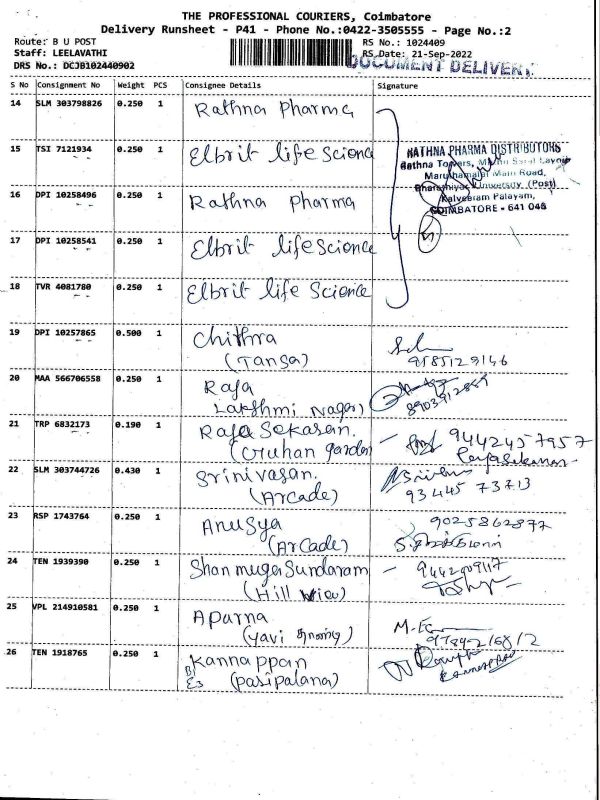 THE PROFESSIONAL COURIERS, Coimbatore
Delivery Runsheet - P41 - Phone No.:0422-3505555 - Page No.:2
Route: B U POST RS No.: 1024409
Staff: LEELAVATHI RS Date: 21-Sep-2022
DRS No.: DCJB102440902 DOCUMENT DELIVERY
S No Consignment No Weight PCS Consignee Details Signature
14 SLM 303798826 0.250 1 Rathna pharma
15 TSI 7121934 0.250 1 Elbrit life Science
RATHNA PHARMA DISTRIBUTORS
Rathna Towers, Layout
Maruthamalai Main Road,
Bharathiyar University (Post)
Kalveeram Palayam,
COIMBATORE - 641 046
16 DPI 10258496 0.250 1 Rathna pharma
17 DPI 10258541 0.250 1 Elbrit life Science
18 TVR 4081780 0.250 1 Elbrit life Science
19 DPI 10257865 0.500 1 Chithra
(Tansa) 9585129146
20 MAA 566706558 0.250 1 Raja
Lakshmi Nagar) 8903912859
21 TRP 6832173 0.190 1 Raja Sekaran. 9442457957
(Guhan garden
22 SLM 303744726 0.430 1 Srinivasan.
(Arcade) 93445 73713
23 RSP 1743764 0.250 1 Anusya 9025862877
(Arcade)
24 TEN 1939390 0.250 1 Shanmuga Sundaram
(Hill View)
25 VPL 214910581 0.250 1 Aparna
26 TEN 1918765 0.250 1 Kannappan
(pasipalana)